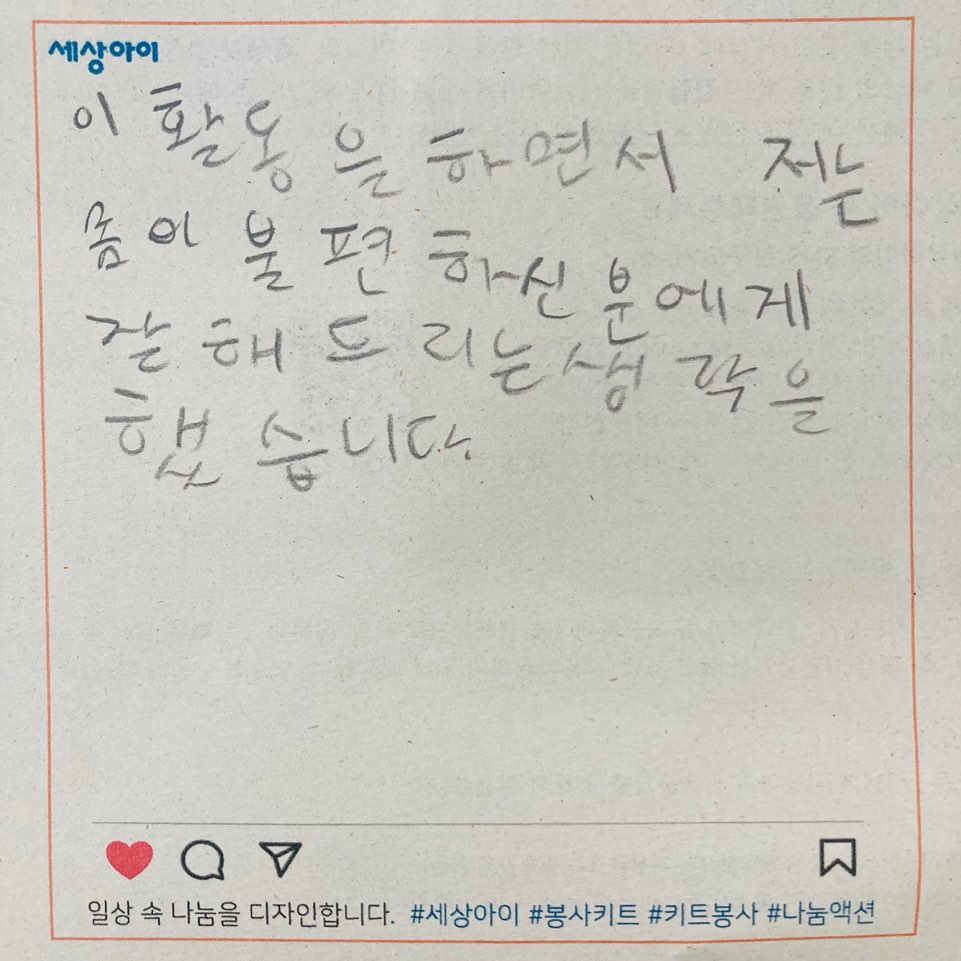 세상아이
이 활동을 하면서 저는
몸이 불편하신 분에게
잘 해 드리는 생각을
했습니다.
일상 속 나눔을 디자인합니다. #세상아이 #봉사키트 #키트봉사 #나눔액션